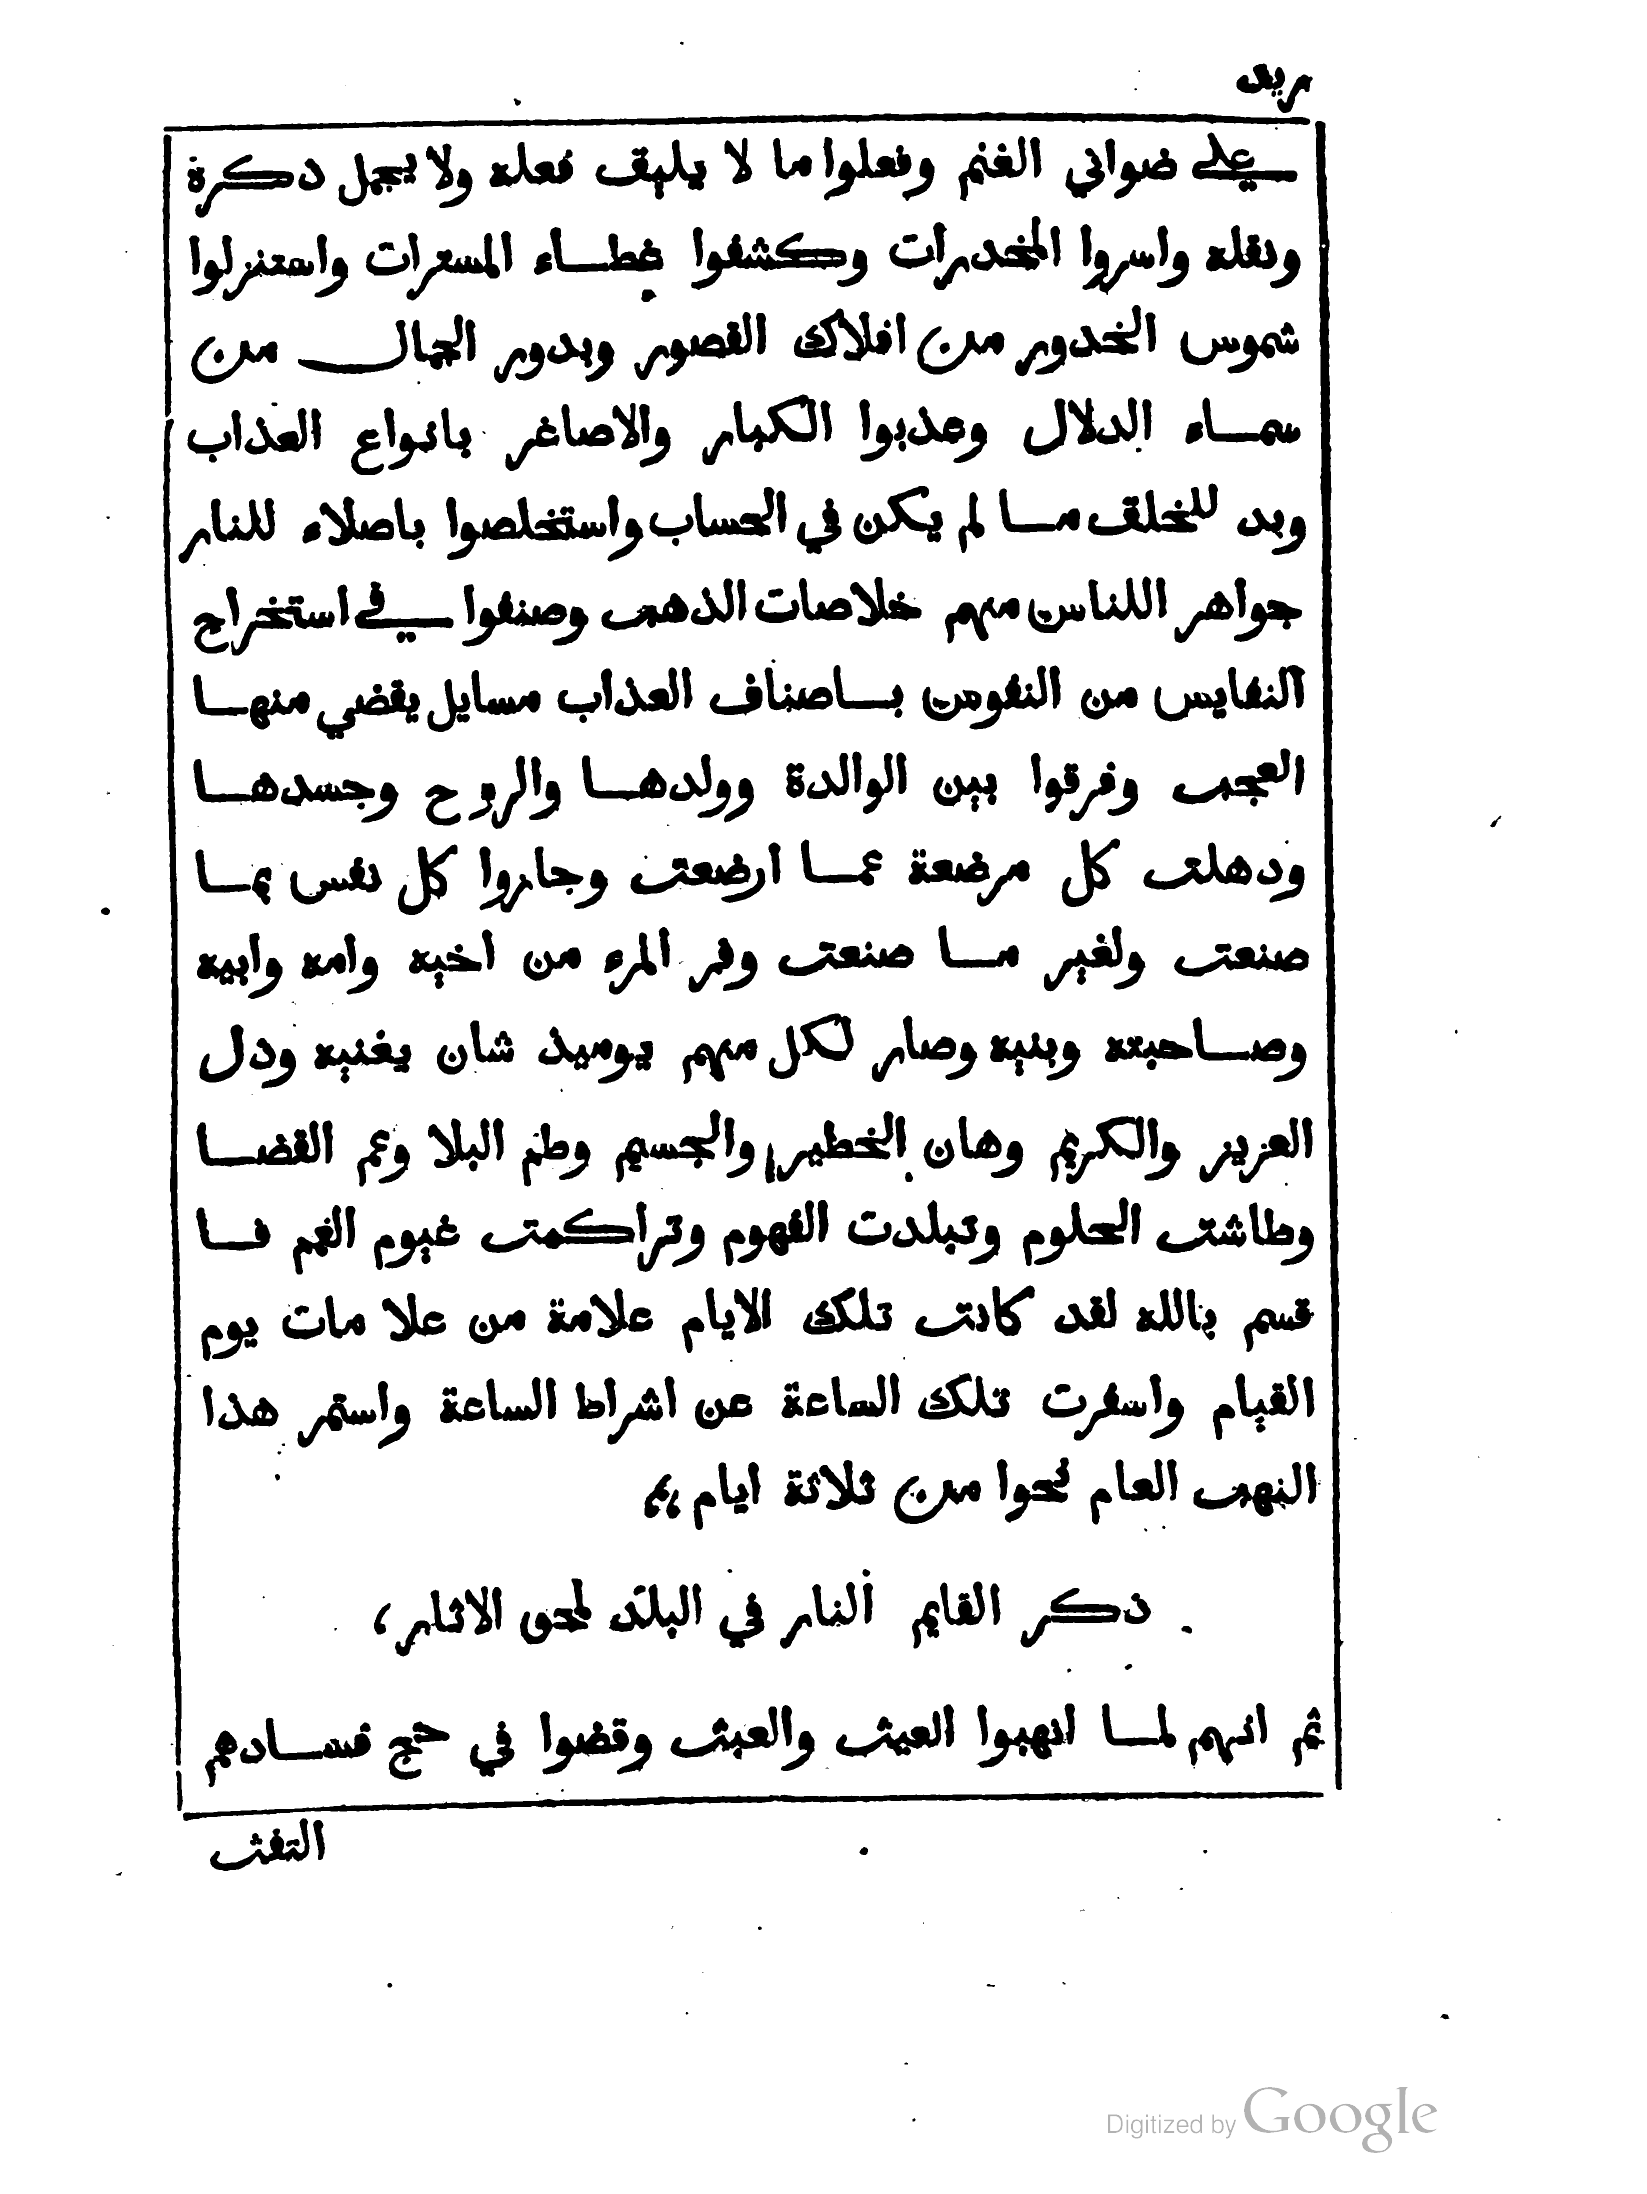 على ضواني الغنم وفعلوا ما لا يليق فعله ولا يجمل دكرة
ونقله واسروا المخدرات وكشفوا غطاء المسترات واستنزلوا
شموس الخدور من افلاك القصور وبدور الجمال من
سماء الدلال وعذبوا الكبار والاصاغر بانواع العذاب
وبد للخلق ما لم يكن في الحساب واستخلصوا باصلاء للنار
جواهر اللناس منهم خلاصات الذهب وصنفوا في استخراج
النفايس من النفوس باصناف العذاب مسايل يقضي منها
العجب وفرقوا بين الوالدة وولدها والروح وجسدها
ودهلت كل مرضعة عما ارضعت وجاروا كل نفس بما
صنعت ولغير ما صنعت وفر المرء من اخيه وامه وابيه
وصاحبته وبنيه وصار لكل منهم يوميذ شان يغنيه ودل
العزيز والكريم وهان الخطير والجسيم وطم البلا وعم القضا
وطاشت الحلوم وتبلدت الفهوم وتراكمت غيوم الغم فا
قسم بالله لقد كانت تلك الايام علامة من علا مات يوم
القيام واسفرت تلك الساعة عن اشراط الساعة واستمر هذا
النهب العام نحوا من ثلاثة ايام
ذكر القايم النار في البلد لمحق الاثار،
ثم انهم لما انهبوا العيث والعبث وقضوا في حج فسادهم
التفث
Digitized by Google